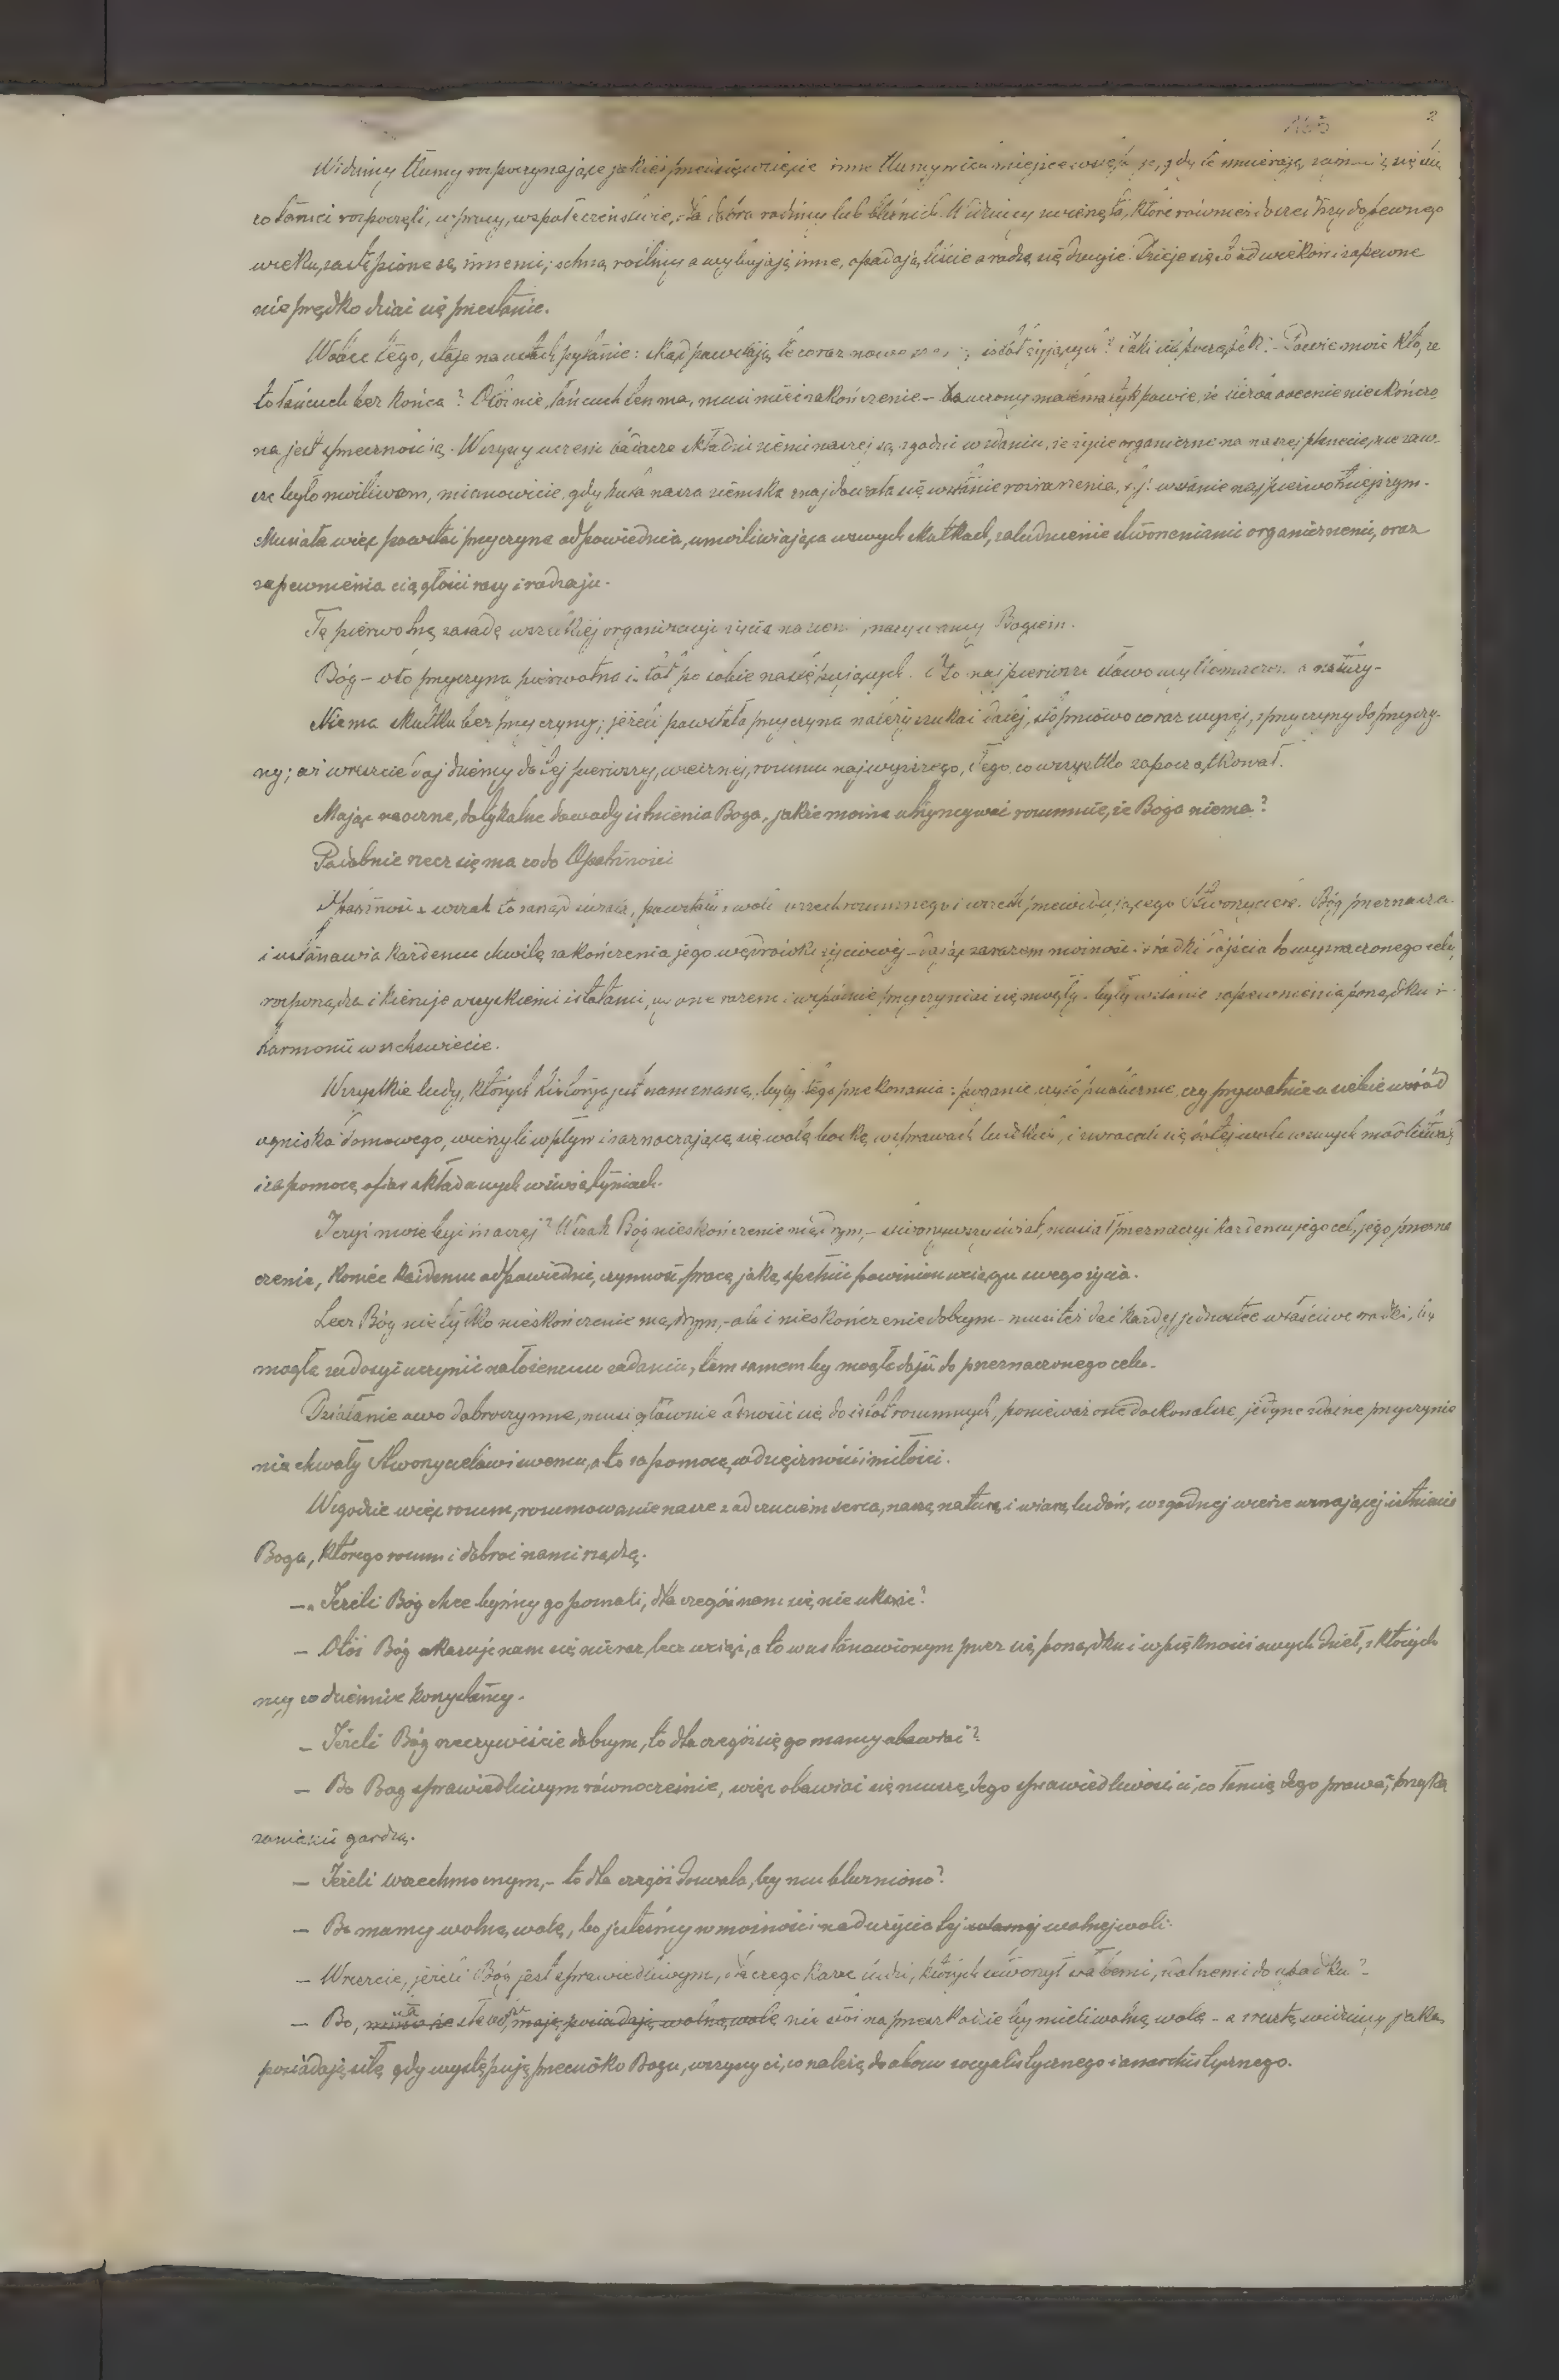 2
Widzimy tłumy rozpoczynające jakieś przedsięwzięcie inne tłumy w ich miejsce wstępują, gdy te umierają, zajmują się tem
co tamci rozpoczęli, w pracy, w społeczeństwie, dla dobra rodziny lub bliźnich. Widzimy zwierzęta, które również doszedłszy do pewnego
wieku, zastąpione są innemi; schną rośliny a wybujają inne, opadają liście a rodzą się drugie. Dzieje się to od wieków i zapewne
nie prędko dziać się przestanie.
Wobec tego, staje na ustach pytanie: skąd powstają te coraz nowe istót żyjących? i jaki ich początek? - Powie może kto, że
to łańcuch bez końca? Otóż nie, łańcuch ten ma, musi mieć zakończenie - bo uczony matematyk powie, że liczba obecnie nieskończo
na jest sprzecznością. Wszyscy uczeni badacze składu ziemi naszej są zgodni w zdaniu, że życie organiczne na naszej planecie, nie zaw-
sze było możliwem, mianowicie, gdy kula nasza ziemska znajdowała się w stanie rozżarzenia, t. j. w stanie najpierwotniejszym.
Musiała więc powstać przyczyna odpowiednia, umożliwiająca w swych skutkach, zaludnienie stworzeniami organicznemi, oraz
zapewnienia ciągłości rasy i rodzaju.
Tę pierwotną zasadę wszelkiej organizacji życia na ziemi, nazywamy Bogiem.
Bóg - oto przyczyna pierwotna istót po sobie następujących. Oto najpierwsze słowo wytłomaczenia natury -
Niema skutku bez przyczyny; jeżeli powstała przyczyna należy szukać dalej, stopniowo coraz wyżej, z przyczyny do przyczy-
ny; aż wreszcie dojdziemy do tej pierwszej, wiecznej, rozumu najwyższego, Tego co wszystko zapoczątkował.
Mając naoczne, dotykalne dowody istnienia Boga, jakże można utrzymywać rozumnie, że Boga niema?
Podobnie rzecz się ma co do Opatrzności
Opatrzność a wszak to zarząd świata, powstały z woli wszechrozumnego i wszechprzewidującego Stworzyciela. Bóg przeznacza
i ustanawia każdemu chwilę zakończenia jego wędrówki życiowej - dając zarazem możność i środki dojścia do wyznaczonego celu,
rozporządza i kieruje wszystkiemi istotami, by one razem i wspólnie przyczynić się mogły i były w stanie zapewnienia porządku i
harmonii wszechświecie.
Wszystkie ludy, których historja jest nam znana, były tego przekonania: poganie czy to publicznie, czy prywatnie u siebie wśród
ogniska domowego, wierzyli w wpływ i zaznaczającą się wolę boską w sprawach ludzkich, i zwracali się do tej woli w swych modlitwach
i za pomocą ofiar składanych w świątyniach.
I czyż może być inaczej? Wszak Bóg nieskończenie mądrym, - stworzywszy świat, musiał przeznaczyć każdemu jego cel, jego przezna
czenie, koniec każdemu odpowiedni, czynność, pracę jaką spełnić powinien w ciągu swego życia.
Lecz Bóg nie tylko nieskończenie mądrym, - ale i nieskończenie dobrym - musi też dać każdej jednostce właściwe środki, by
mogła zadosyć uczynić nałożonemu zadaniu, tem samem by mogła dojść do przeznaczonego celu.
Działanie owo dobroczynne, musi głównie odnosić się do istót rozumnych, ponieważ one doskonalsze, jedyne zdolne przyczynie
nia chwały Stworzycielowi swemu, a to za pomocą wdzięczności i miłości.
W zgodzie więc rozum, rozumowanie nasze z odczuciem serca, naszą naturą i wiarą ludów, w zgodnej wierze uznającej istnienie
Boga, którego rozum i dobroć nami rządzą.
- Jeżeli Bóg chce byśmy go poznali, dla czegóż nam się nie ukaże?
- Otóż Bóg ukazuje nam się nieraz, lecz wciąż, a to w ustanowionym przez się porządku i w piękności swych dzieł, z których
my codziennie korzystamy.
- Jeżeli Bóg rzeczywiście dobrym, to dla czegóż się go mamy obawiać?
- Bo Bóg sprawiedliwym równocześnie, więc obawiać się muszą Jego sprawiedliwości ci, co łamią Jego prawa, przyka
zaniami gardzą.
- Jeżeli wszechmocnym, - to dla czegóż dozwala, by mu bluźniono?
- Bo mamy wolną wolę, bo jesteśmy w możności nadużycia tej wolnej woli.
- Wreszcie, jeżeli Bóg jest sprawiedliwym, dlaczego karze ludzi, których stworzył słabemi, zdolnemi do upadku? -
- Bo, słabość, mają, posiadają wolną wolę nie stoi na przeszkodzie by mieli wolną wolę - a zresztą widzimy jaką
posiadają siłę gdy występują przeciwko Bogu, wszyscy ci, co należą do obozu socyalistycznego i anarchistycznego.